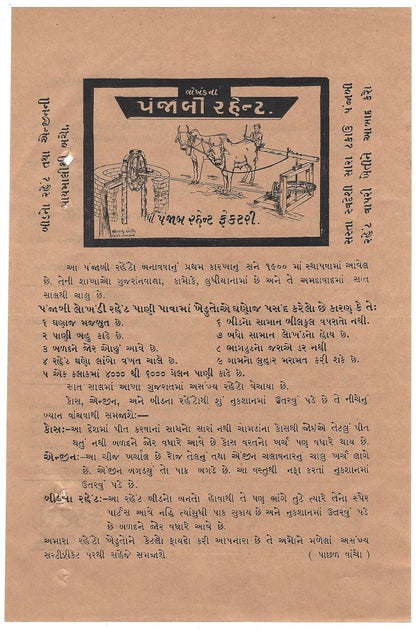 લોખંડના
પંજાબી રહેન્ટ.
ધી પંજાબ રહેન્ટ ફેકટરી.
બીડના રહેંટ તથા એન્જીનની
પાયમાલીથી બચો,
સસ્તા સ્વદેશી મારા ટકાઉ પંજાબી
રહેંટ વાપરી ખેતીને આબાદ કરો.
આ પંજાબી રહેંટો બનાવવાનું પ્રથમ કારખાનું સને ૧૯૦૦ માં સ્થાપવામાં આવેલ
છે. તેની શાખાઓ ગુજરાનવાલા, કામોકે, લુધીયાનામાં છે અને તે અમદાવાદમાં સાત
સાલથી ચાલુ છે.
પંજાબી લોખંડી રહેંટ પાણી પાવામાં ખેડુતોએ ઘણોજ પસંદ કરેલો છે કારણ કે તેઃ
૧ ઘણોજ મજબુત છે.
૨ પાણી બહુ કાઢે છે.
૩ બળદને જોર ઓછું આવે છે.
૪ રહેંટ ઘણો લાંબો વખત ચાલે છે.
૫ એક કલાકમાં ૪૦૦૦ થી ૬૦૦૦ ગેલન પાણી કાઢે છે.
૬ બીડનો સામાન બીલકુલ વપરાતો નથી.
૭ બધો સામાન લોખંડનોજ હોય છે.
૮ ભાગતુટનો જરાએ ડર નથી
૯ ગામનો લુહાર મરામત કરી શકે છે.
સાત સાલમાં આખા ગુજરાતમાં અસંખ્ય રહેંટો વેચાયા છે.
કોસ, એન્જીન, અને બીડના રહેંટોથી શું નુકશાનમાં ઉતરવું પડે છે તે નીચેનું
બ્યાન વાંચવાથી સમજાશેઃ—
કોસઃ—આ દેશમાં પીત કરવાનાં સાધનો સારાં નથી ચામડાંના કોસથી જોઈએ તેટલું પીત
થતું નથી બળદને જોર વધારે આવે છે કોસ વરતનો ખર્ચ પણ વધારે થાય છે.
એન્જીનઃ—આ ચીજ ખર્ચાળ છે રોજ તેલનું તથા એંજીન ચલાવનારનું ચાલુ ખર્ચ લાગે
છે. એંજીન બગડયું તો પાક બગડે છે. આ વસ્તુથી નફા કરતાં નુકશાનમાં
ઉતરવું પડે છે.
બીડના રહેંટઃ—આ રહેંટ બીડનો બનતો હોવાથી તે પણ ભાંગે તુટે ત્યારે તેનો સ્પેર
પાર્ટસ આવે નહિ ત્યાંસુધી પાક સુકાય છે અને નુકશાનમાં ઉતરવું પડે
છે બળદને જોર વધારે આવે છે.
અમારા રહેંટો ખેડુતોને કેટલો ફાયદો કરી આપનારા છે તે અમોને મળેલાં અસંખ્ય
સરટીફીકેટ પરથી સહેજે સમજાશે. ( પાછળ વાંચો )